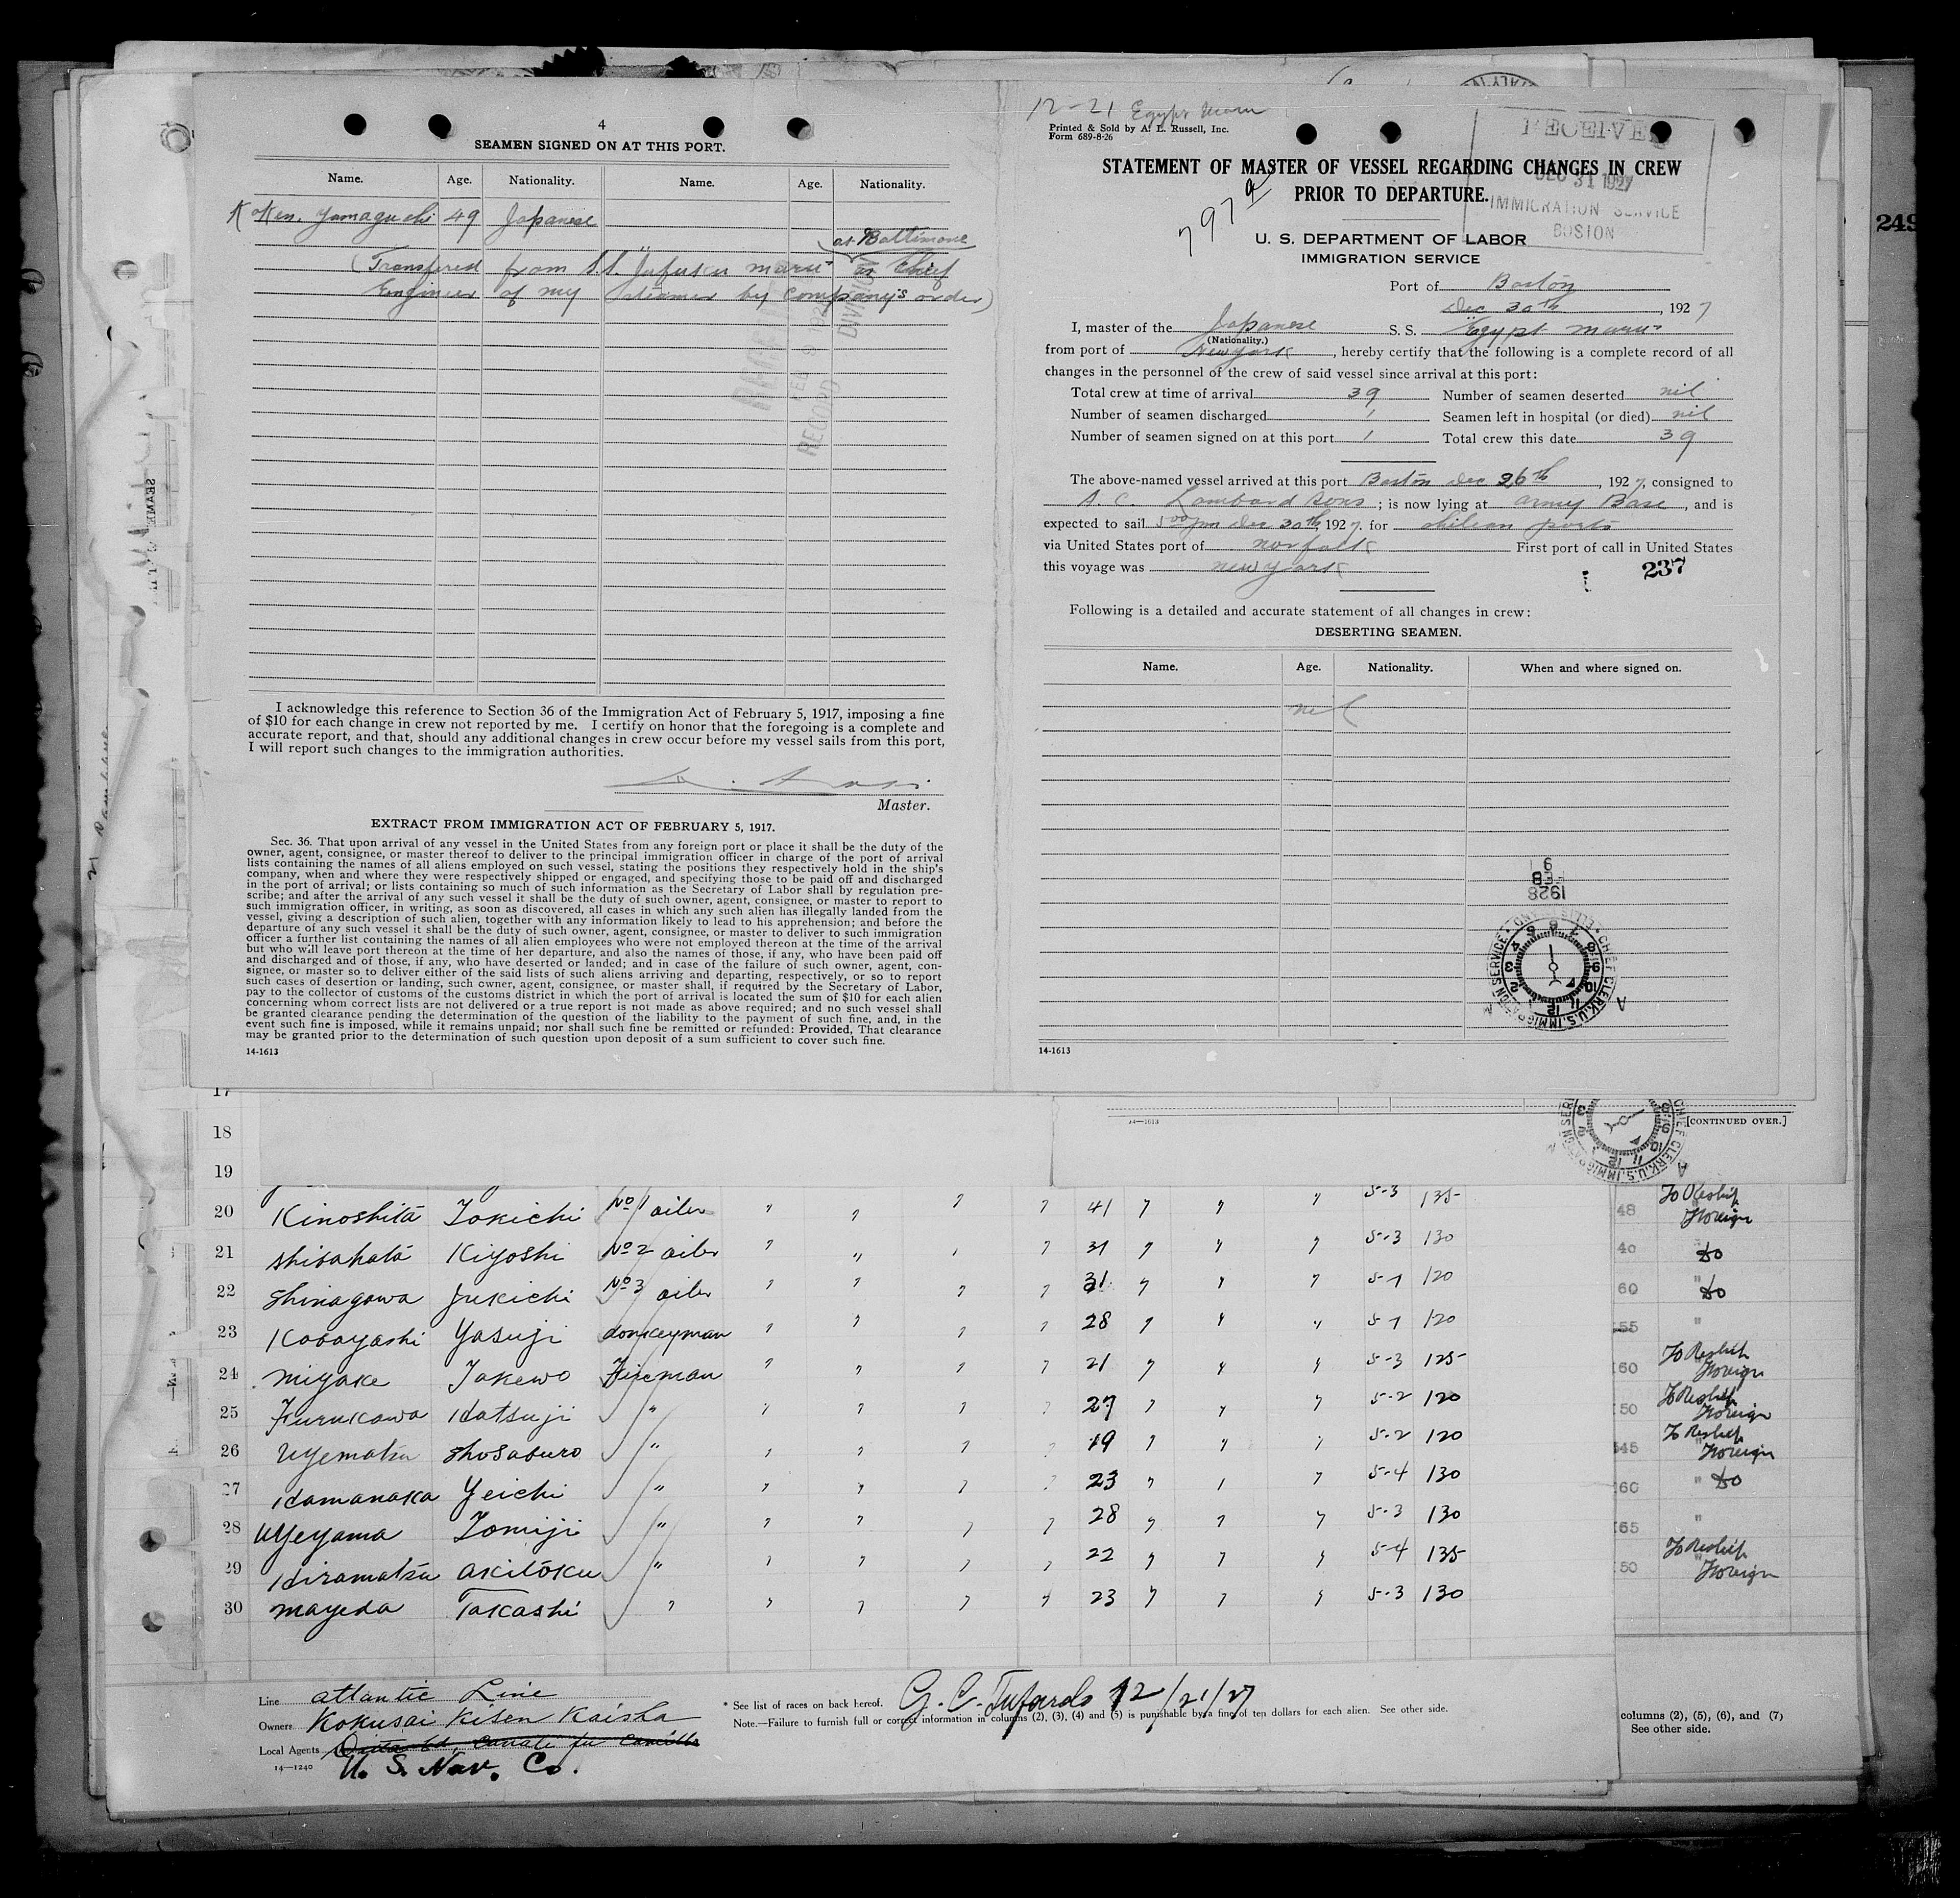 4
SEAMEN SIGNED ON AT THIS PORT.
Name. Age. Nationality. Name. Age. Nationality.
Ken. Yamaguchi 49 Japanese
at Baltimore
(Transfered from S.S. "Jufuku maru" as Chief
Engineer of my steamer by company's order)
I acknowledge this reference to Section 36 of the Immigration Act of February 5, 1917, imposing a fine
of $10 for each change in crew not reported by me. I certify on honor that the foregoing is a complete and
accurate report, and that, should any additional changes in crew occur before my vessel sails from this port,
I will report such changes to the immigration authorities.
Master.
EXTRACT FROM IMMIGRATION ACT OF FEBRUARY 5, 1917.
Sec. 36. That upon arrival of any vessel in the United States from any foreign port or place it shall be the duty of the
owner, agent, consignee, or master thereof to deliver to the principal immigration officer in charge of the port of arrival
lists containing the names of all aliens employed on such vessel, stating the positions they respectively hold in the ship's
company, when and where they were respectively shipped or engaged, and specifying those to be paid off and discharged
in the port of arrival; or lists containing so much of such information as the Secretary of Labor shall by regulation pre-
scribe; and after the arrival of any such vessel it shall be the duty of such owner, agent, consignee, or master to report to
such immigration officer, in writing, as soon as discovered, all cases in which any such alien has illegally landed from the
vessel, giving a description of such alien, together with any information likely to lead to his apprehension; and before the
departure of any such vessel it shall be the duty of such owner, agent, consignee, or master to deliver to such immigration
officer a further list containing the names of all alien employees who were not employed thereon at the time of the arrival
but who will leave port thereon at the time of her departure, and also the names of those, if any, who have been paid off
and discharged and of those, if any, who have deserted or landed; and in case of the failure of such owner, agent, con-
signee, or master so to deliver either of the said lists of such aliens arriving and departing, respectively, or so to report
such cases of desertion or landing, such owner, agent, consignee, or master shall, if required by the Secretary of Labor,
pay to the collector of customs of the customs district in which the port of arrival is located the sum of $10 for each alien
concerning whom correct lists are not delivered or a true report is not made as above required; and no such vessel shall
be granted clearance pending the determination of the question of the liability to the payment of such fine, and, in the
event such fine is imposed, while it remains unpaid; nor shall such fine be remitted or refunded: Provided, That clearance
may be granted prior to the determination of such question upon deposit of a sum sufficient to cover such fine.
14-1613
12-21 Egypt Maru
Printed & Sold by A. E. Russell, Inc.
Form 689-8-26
RECEIVED
DEC 31 1927
IMMIGRATION SERVICE
BOSTON
STATEMENT OF MASTER OF VESSEL REGARDING CHANGES IN CREW
PRIOR TO DEPARTURE.
U. S. DEPARTMENT OF LABOR
IMMIGRATION SERVICE
Port of Boston
Dec 30th, 1927
I, master of the Japanese S. S. "Egypt maru"
(Nationality.)
from port of New york, hereby certify that the following is a complete record of all
changes in the personnel of the crew of said vessel since arrival at this port:
Total crew at time of arrival 39 Number of seamen deserted nil
Number of seamen discharged 1 Seamen left in hospital (or died) nil
Number of seamen signed on at this port 1 Total crew this date 39
The above-named vessel arrived at this port Boston Dec 26th, 1927, consigned to
A. C. Lombard Sons; is now lying at Army Base, and is
expected to sail 5 00 pm Dec 30th, 1927. for chilean ports
via United States port of norfolk First port of call in United States
this voyage was new york
237
249
Following is a detailed and accurate statement of all changes in crew:
DESERTING SEAMEN.
Name. Age. Nationality. When and where signed on.
nil
9
FEB
1928
CHIEF CLERK, U.S. IMMIGRATION SERVICE
14-1613
14-1613
[CONTINUED OVER.]
17
18
19
20 Kinoshita Tokichi No 1 oiler 41 5-3 135 48 To Reship Foreign
21 Shibahata Kiyoshi No 2 oiler 31 5-3 130 40 " do
22 Shinagawa Jukichi No 3 oiler 31 5-1 120 60 " do
23 Kobayashi Yasuji donkeyman 28 5-1 120 55 "
24 Miyake Takewo Fireman 21 5-3 125 60 To Reship Foreign
25 Furukawa Katsuji " 27 5-2 120 50 To Reship Foreign
26 Uyematsu Shosaburo " 19 5-2 120 45 To Reship Foreign
27 Hamanaka Yeichi " 23 5-4 130 60 " do
28 Uyeyama Tomiji " 28 5-3 130 65 "
29 Hiramatsu Akitoku " 22 5-4 135 50 To Reship Foreign
30 Mayeda Takashi " 23 5-3 130
Line Atlantic Line
Owners Kokusai Kisen Kaisha
Local Agents
U. S. Nav. Co.
14-1240
* See list of races on back hereof.
12/21/27
Note.—Failure to furnish full or correct information in columns (2), (3), (4) and (5) is punishable by a fine of ten dollars for each alien. See other side.
columns (2), (5), (6), and (7)
See other side.